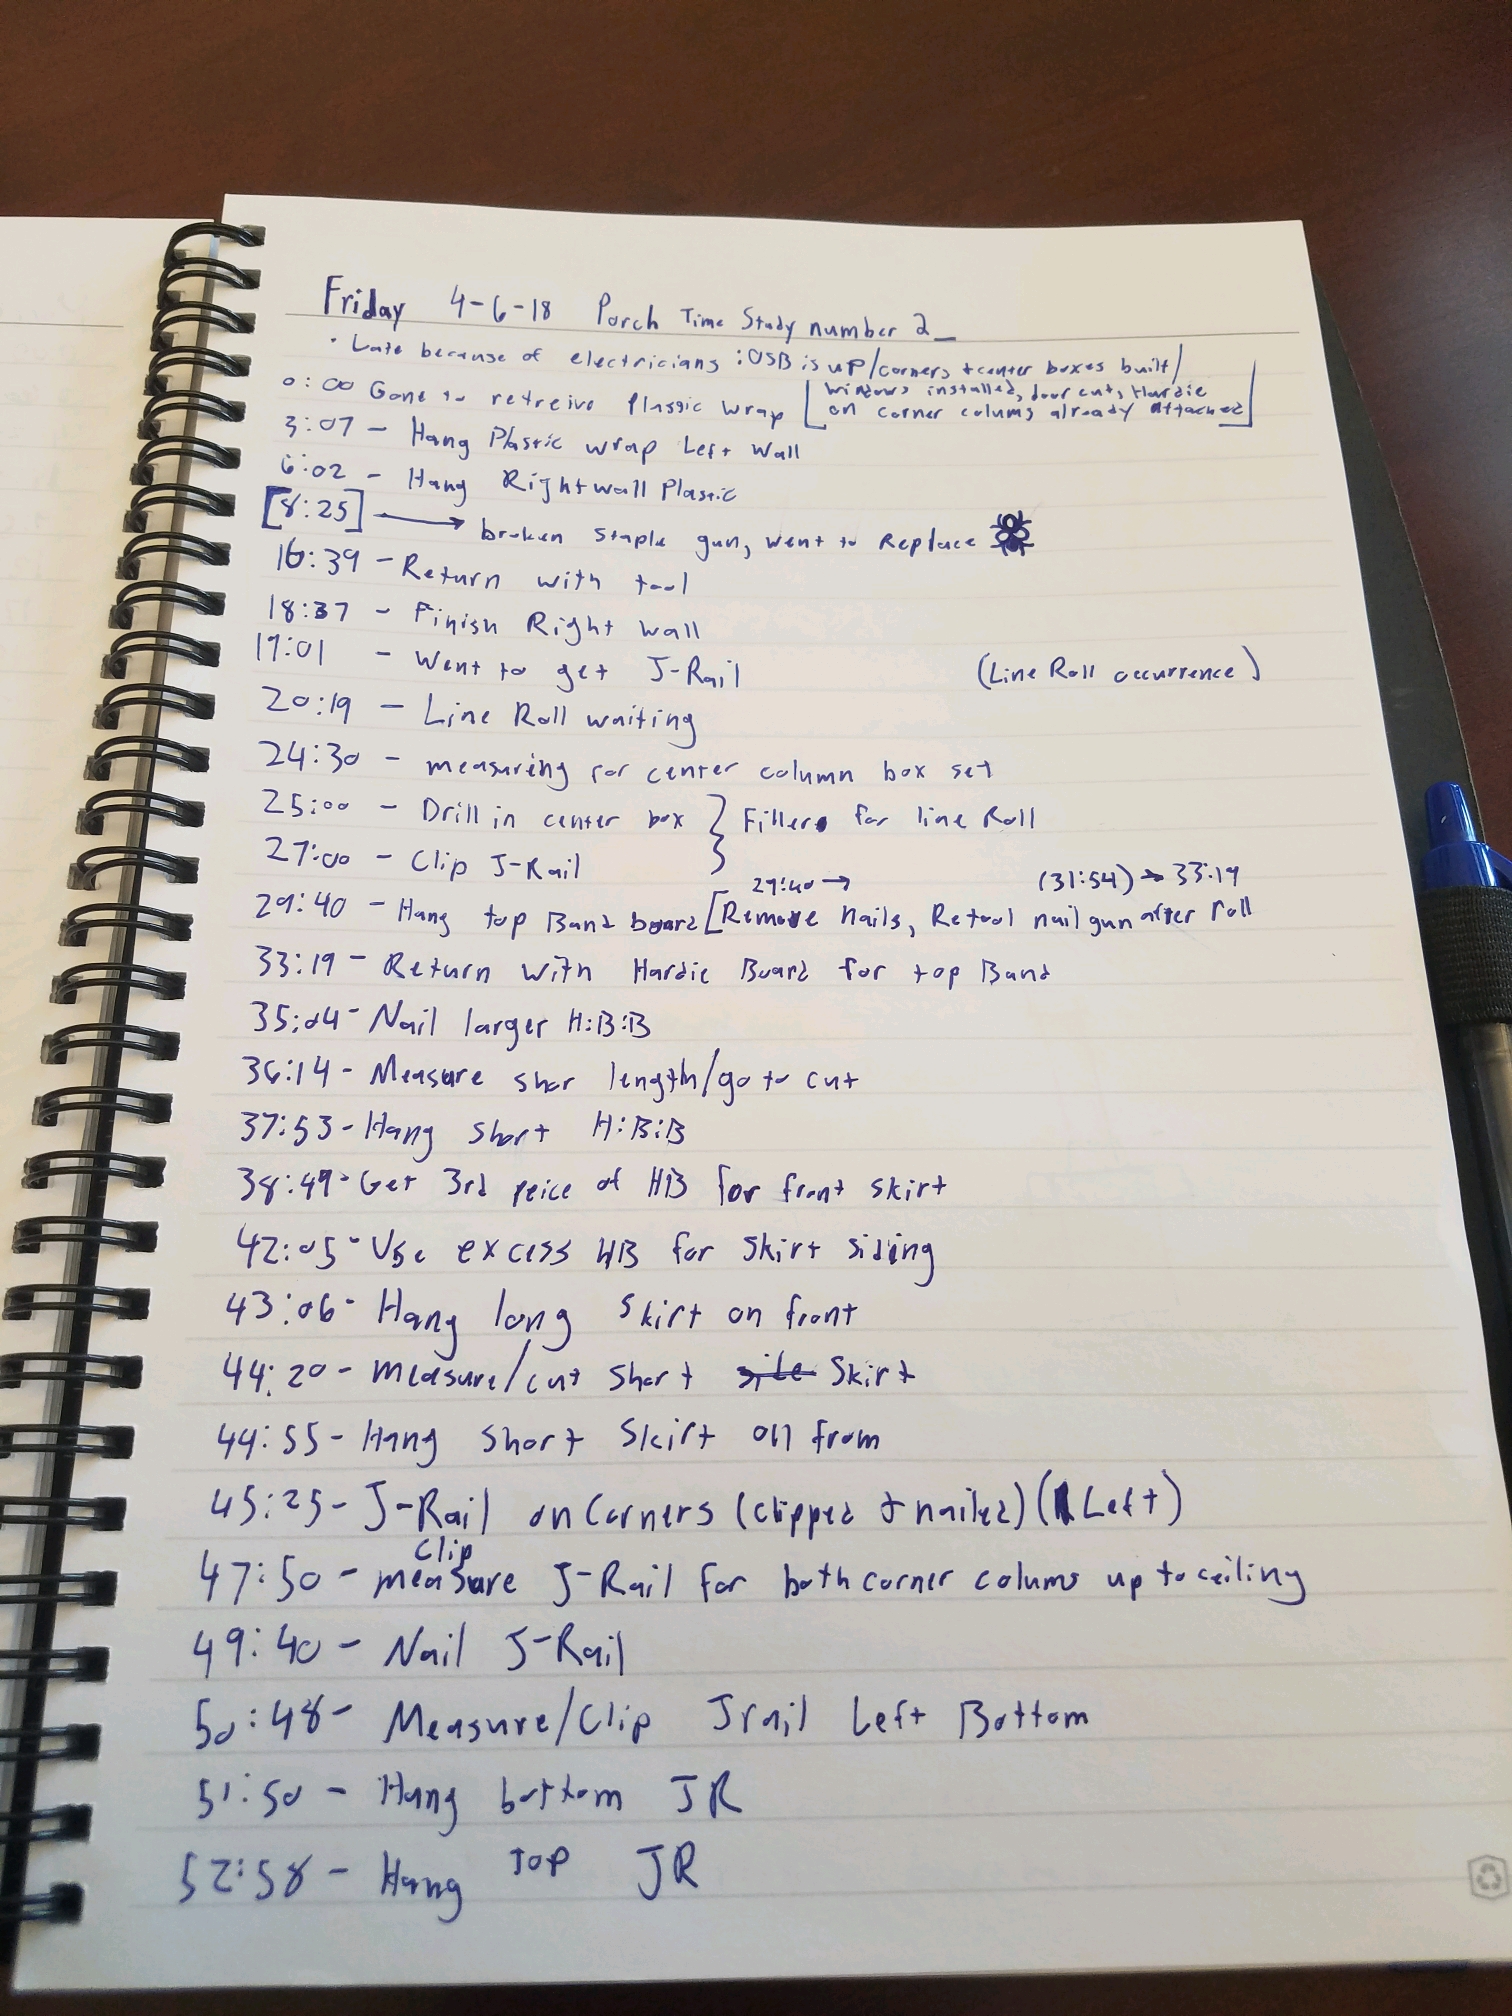 Friday 4-6-18 Porch Time Study number 2
• Late because of electricians : OSB is up/corners + center boxes built/
0:00 Gone to retreive Plassic wrap [windows installed, door cut, Hardie
on corner colums already attached]
3:07 - Hang Plastic wrap Left Wall
6:02 - Hang Right wall Plastic
[8:25] → broken staple gun, went to Replace
16:39 - Return with tool
18:37 - Finish Right wall
19:01 - Went to get J-Rail (Line Roll occurrence)
20:19 - Line Roll waiting
24:30 - measuring for center column box set
25:00 - Drill in center box } Fillers for line Roll
27:00 - Clip J-Rail
29:40 → (31:54) → 33:19
29:40 - Hang top Band board [Remove Nails, Retool nail gun after roll
33:19 - Return with Hardie Board for top Band
35:04 - Nail larger H:B:B
36:14 - Measure shor length/go to cut
37:53 - Hang short H:B:B
38:49 - Get 3rd peice of HB for front skirt
42:05 - Use excess HB for skirt siding
43:06 - Hang long skirt on front
44:20 - measure/cut short Skirt
44:55 - Hang short skirt on from
45:25 - J-Rail on Corners (clipped + nailed) (Left)
Clip
47:50 - measure J-Rail for both corner colums up to ceiling
49:40 - Nail J-Rail
50:48 - Measure/Clip Jrail Left Bottom
51:50 - Hang bottom JR
52:58 - Hang TOP JR